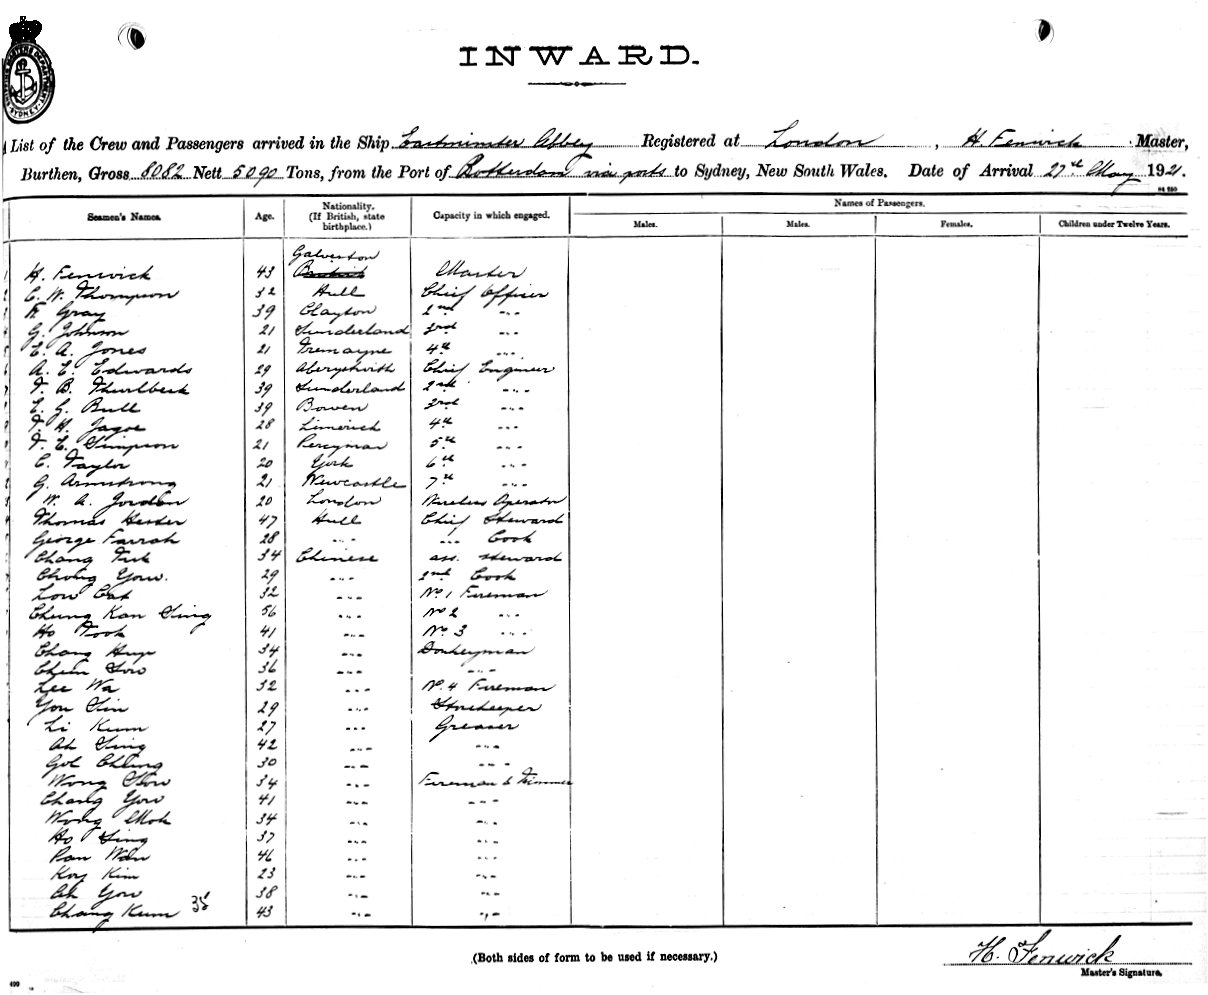 INWARD.
List of the Crew and Passengers arrived in the Ship Eastminster Abbey Registered at London, H. Fenwick Master,
Burthen, Gross 8082 Nett 5090 Tons, from the Port of Rotterdam via ports to Sydney, New South Wales. Date of Arrival 27th May 1921.
Seamen's Names. Age. Nationality. (If British, state birthplace.) Capacity in which engaged. Names of Passengers.
Males. Males. Females. Children under Twelve Years.
Galverton
H. Fenwick 43 British Master
C. W. Thompson 32 Hull Chief Officer
Gray 39 Clayton 2nd "
G. Johnson 21 Sunderland 3rd "
E. A. Jones 21 Tremayne 4th "
A. E. Edwards 29 Aberystwith Chief Engineer
T. B. Thurlbeck 39 Sunderland 2nd "
E. G. Bull 39 Bowen 3rd "
T. H. Jagoe 28 Limerick 4th "
T. E. Simpson 21 5th "
C. Taylor 20 York 6th "
G. Armstrong 21 Newcastle 7th "
W. A. Jordan 20 London Wireless Operator
Thomas Hester 47 Hull Chief Steward
George Farrah 28 " " Cook
Chang Tuk 34 Chinese ass. steward
Chong Yow. 29 " 2nd Cook
Low Cat 32 " No. 1 Fireman
Cheung Kan Sing 56 " No 2 "
Ho Took 41 " No. 3 "
Chang Hup 34 " Donkeyman
Chein Sow 36 " "
Lee Wa 32 " No. 4 Fireman
You Sin 29 " Storekeeper
Li Kum 27 " Greaser
Ah Sing 42 " "
Got Cheung 30 " "
Wong Sow 34 " Fireman & Trimmer
Chang Yow 41 " "
Wong Mok 34 " "
Ho Sing 37 " "
Pan Wan 46 " "
Koy Kim 23 " "
Ah You 38 " "
Chang Kum 35 43 " "
(Both sides of form to be used if necessary.)
H. Fenwick
Master's Signature.